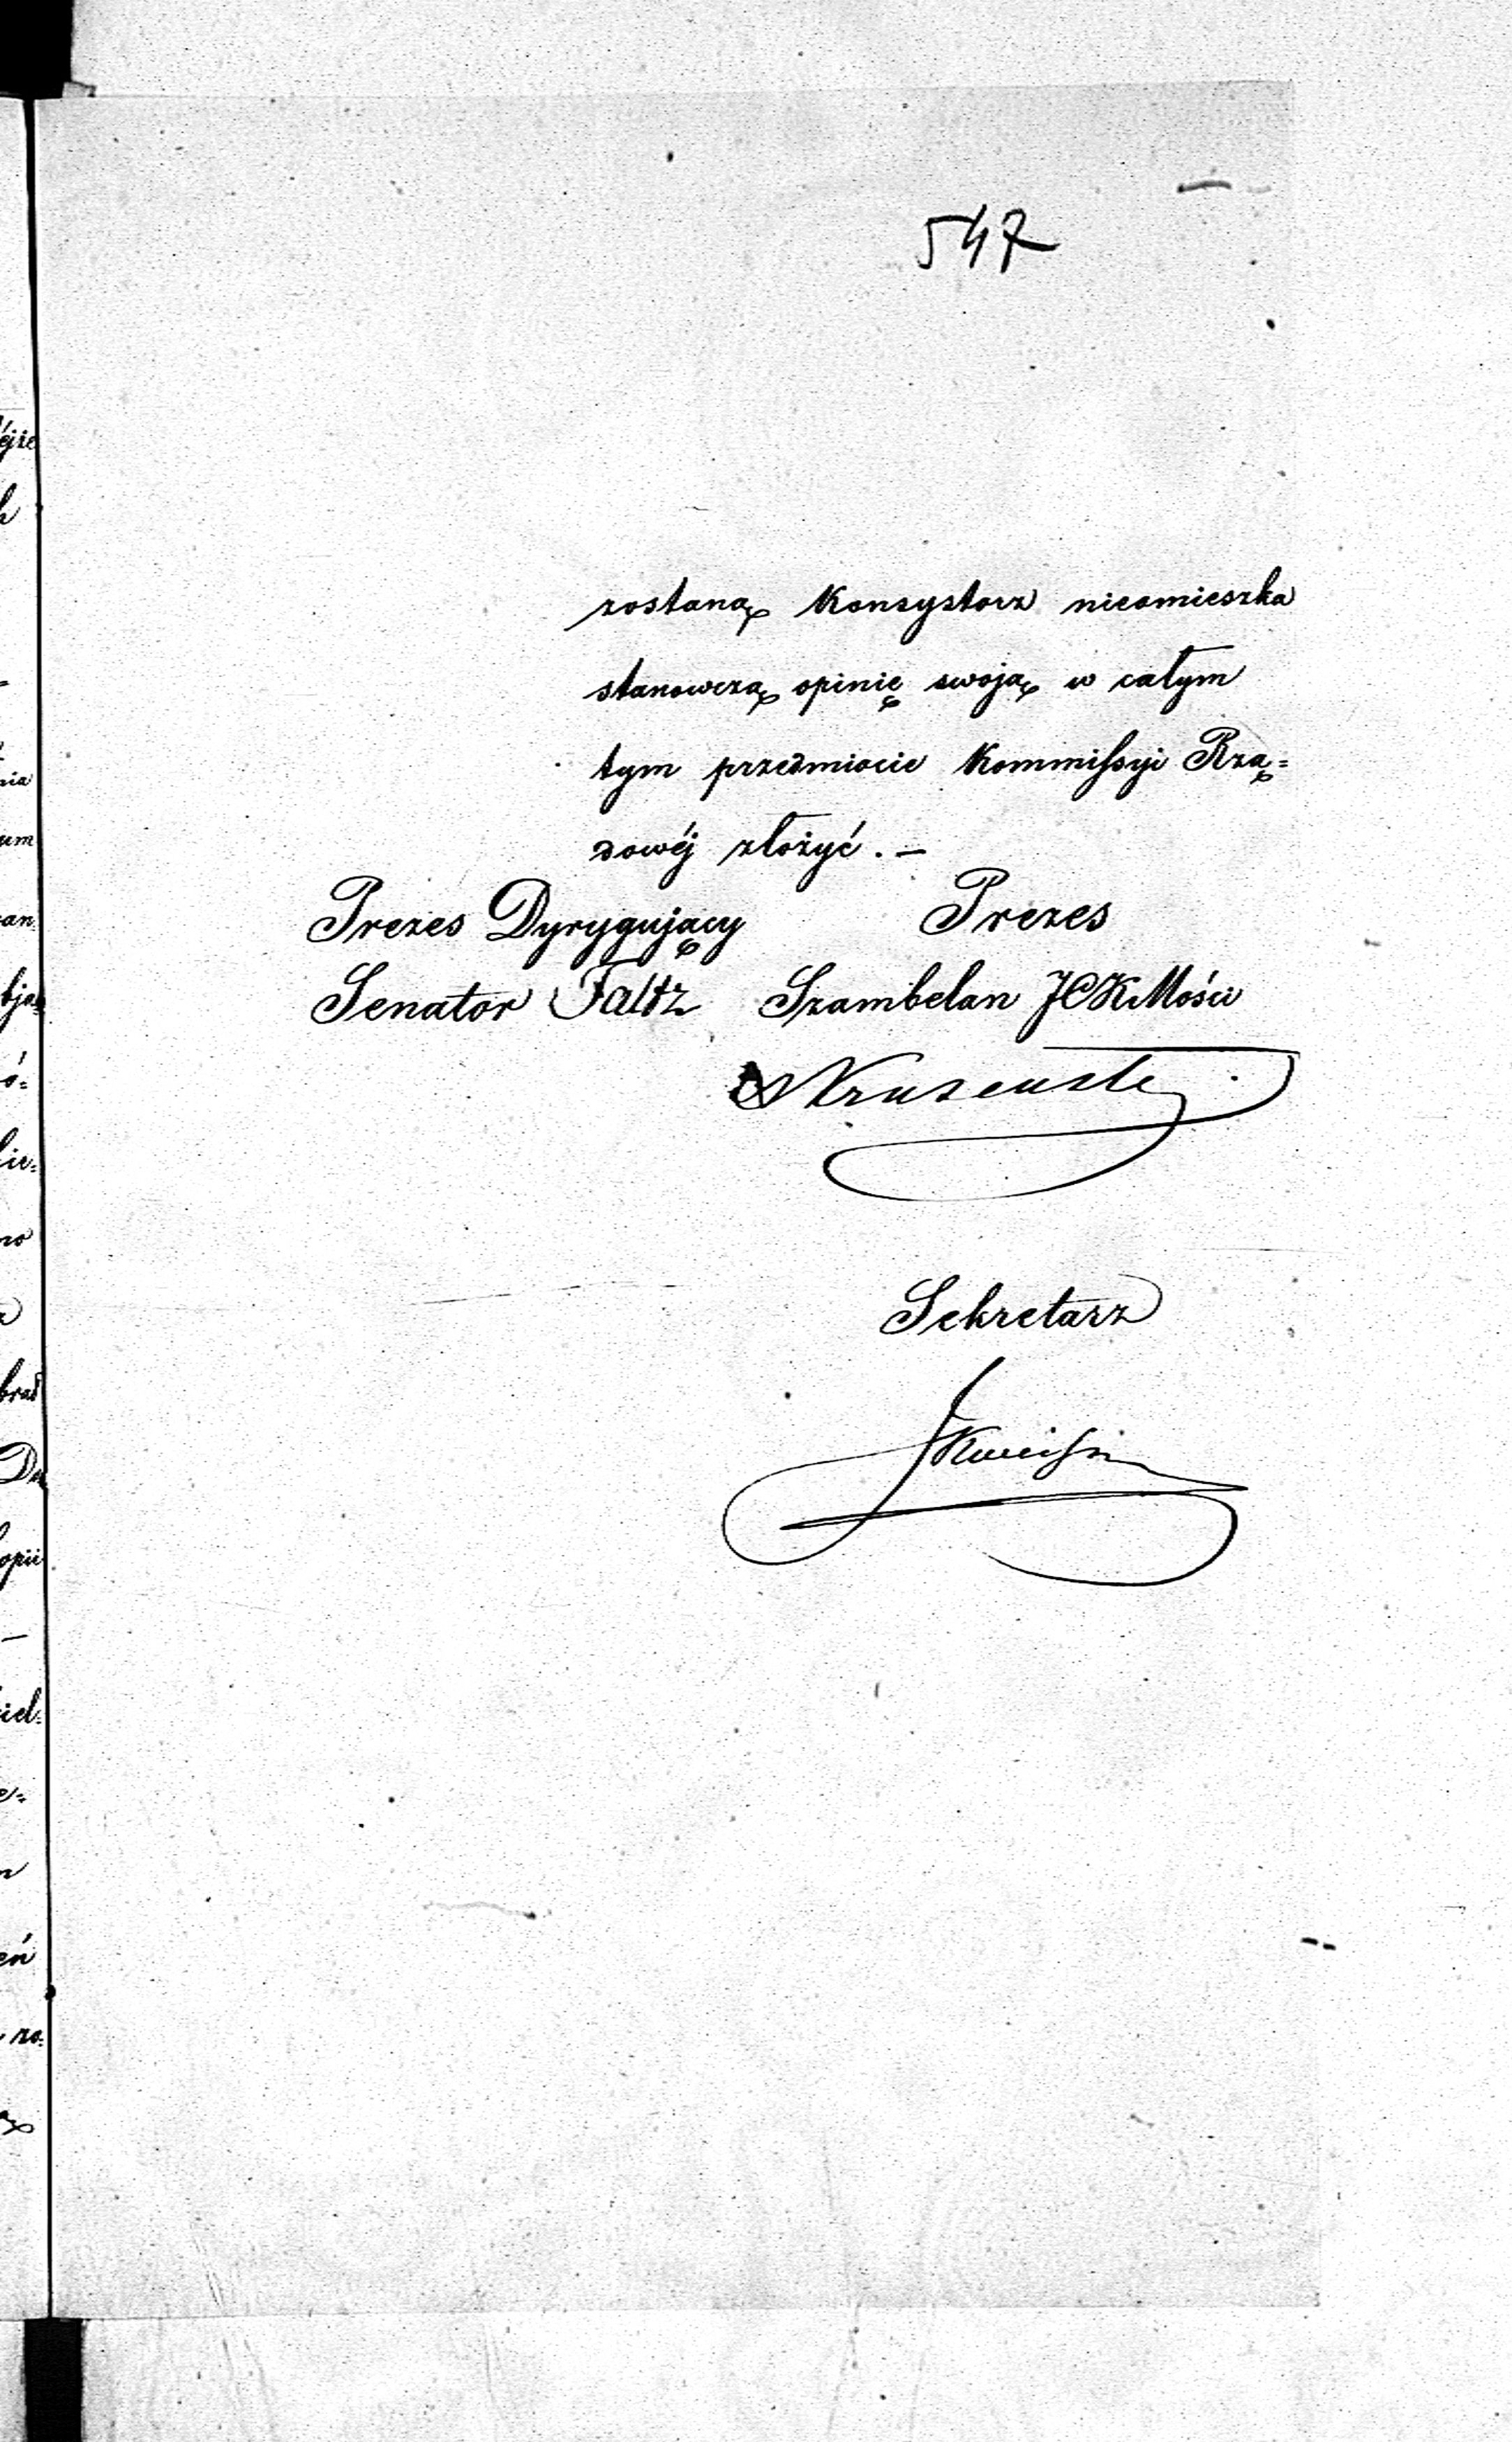 547
zostaną Konsystorz nieomieszka
stanowczą opinię swoją w całym
tym przedmiocie Kommissyi Rzą=
dowéj złożyć. —
Prezes Dyrygujący
Prezes
Senator Faltz
Szambelan JCKMości
Sekretarz